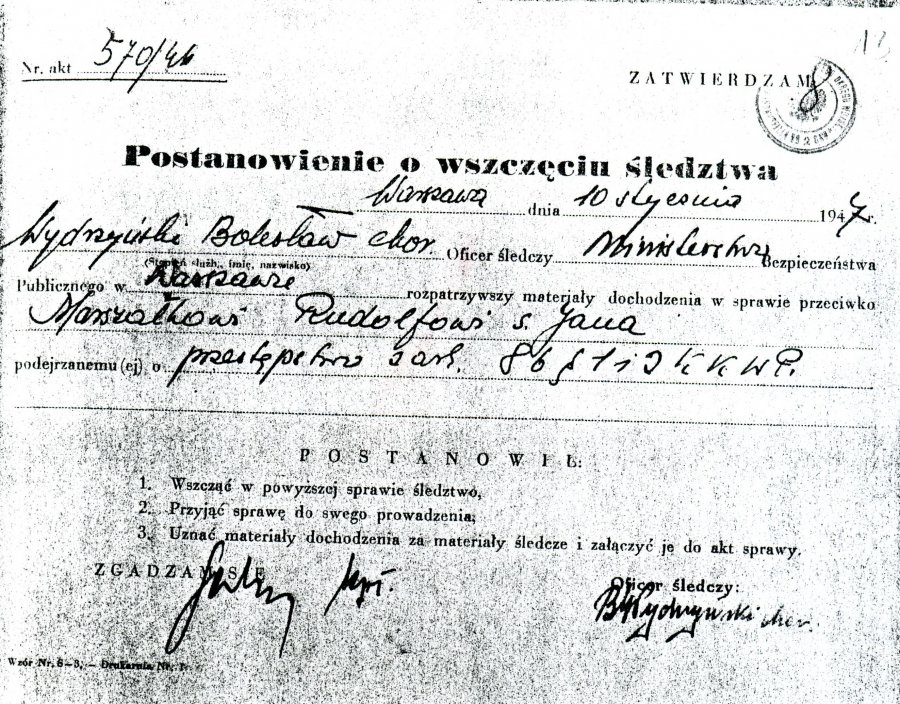 13
Nr. akt 570/46
ZATWIERDZAM
Postanowienie o wszczęciu śledztwa
Warszawa dnia 10 stycznia 1947 r.
Wydrzyński Bolesław chor. Oficer śledczy Ministerstwa Bezpieczeństwa
(Stopień służb., imię, nazwisko)
Publicznego w Warszawie rozpatrzywszy materjały dochodzenia w sprawie przeciwko
Marszałkowi Rudolfowi s. Jana
podejrzanemu (ej) o przestępstwo z art. 86 § 1 i 2 K K W P.
POSTANOWIŁ:
1. Wszcząć w powyższej sprawie śledztwo,
2. Przyjąć sprawę do swego prowadzenia,
3. Uznać materjały dochodzenia za materjały śledcze i załączyć je do akt sprawy.
ZGADZAM SIĘ kpt.
Oficer śledczy:
B Wydrzyński chor.
Wzór Nr. 8-3, — Drukarnia Nr. 1.